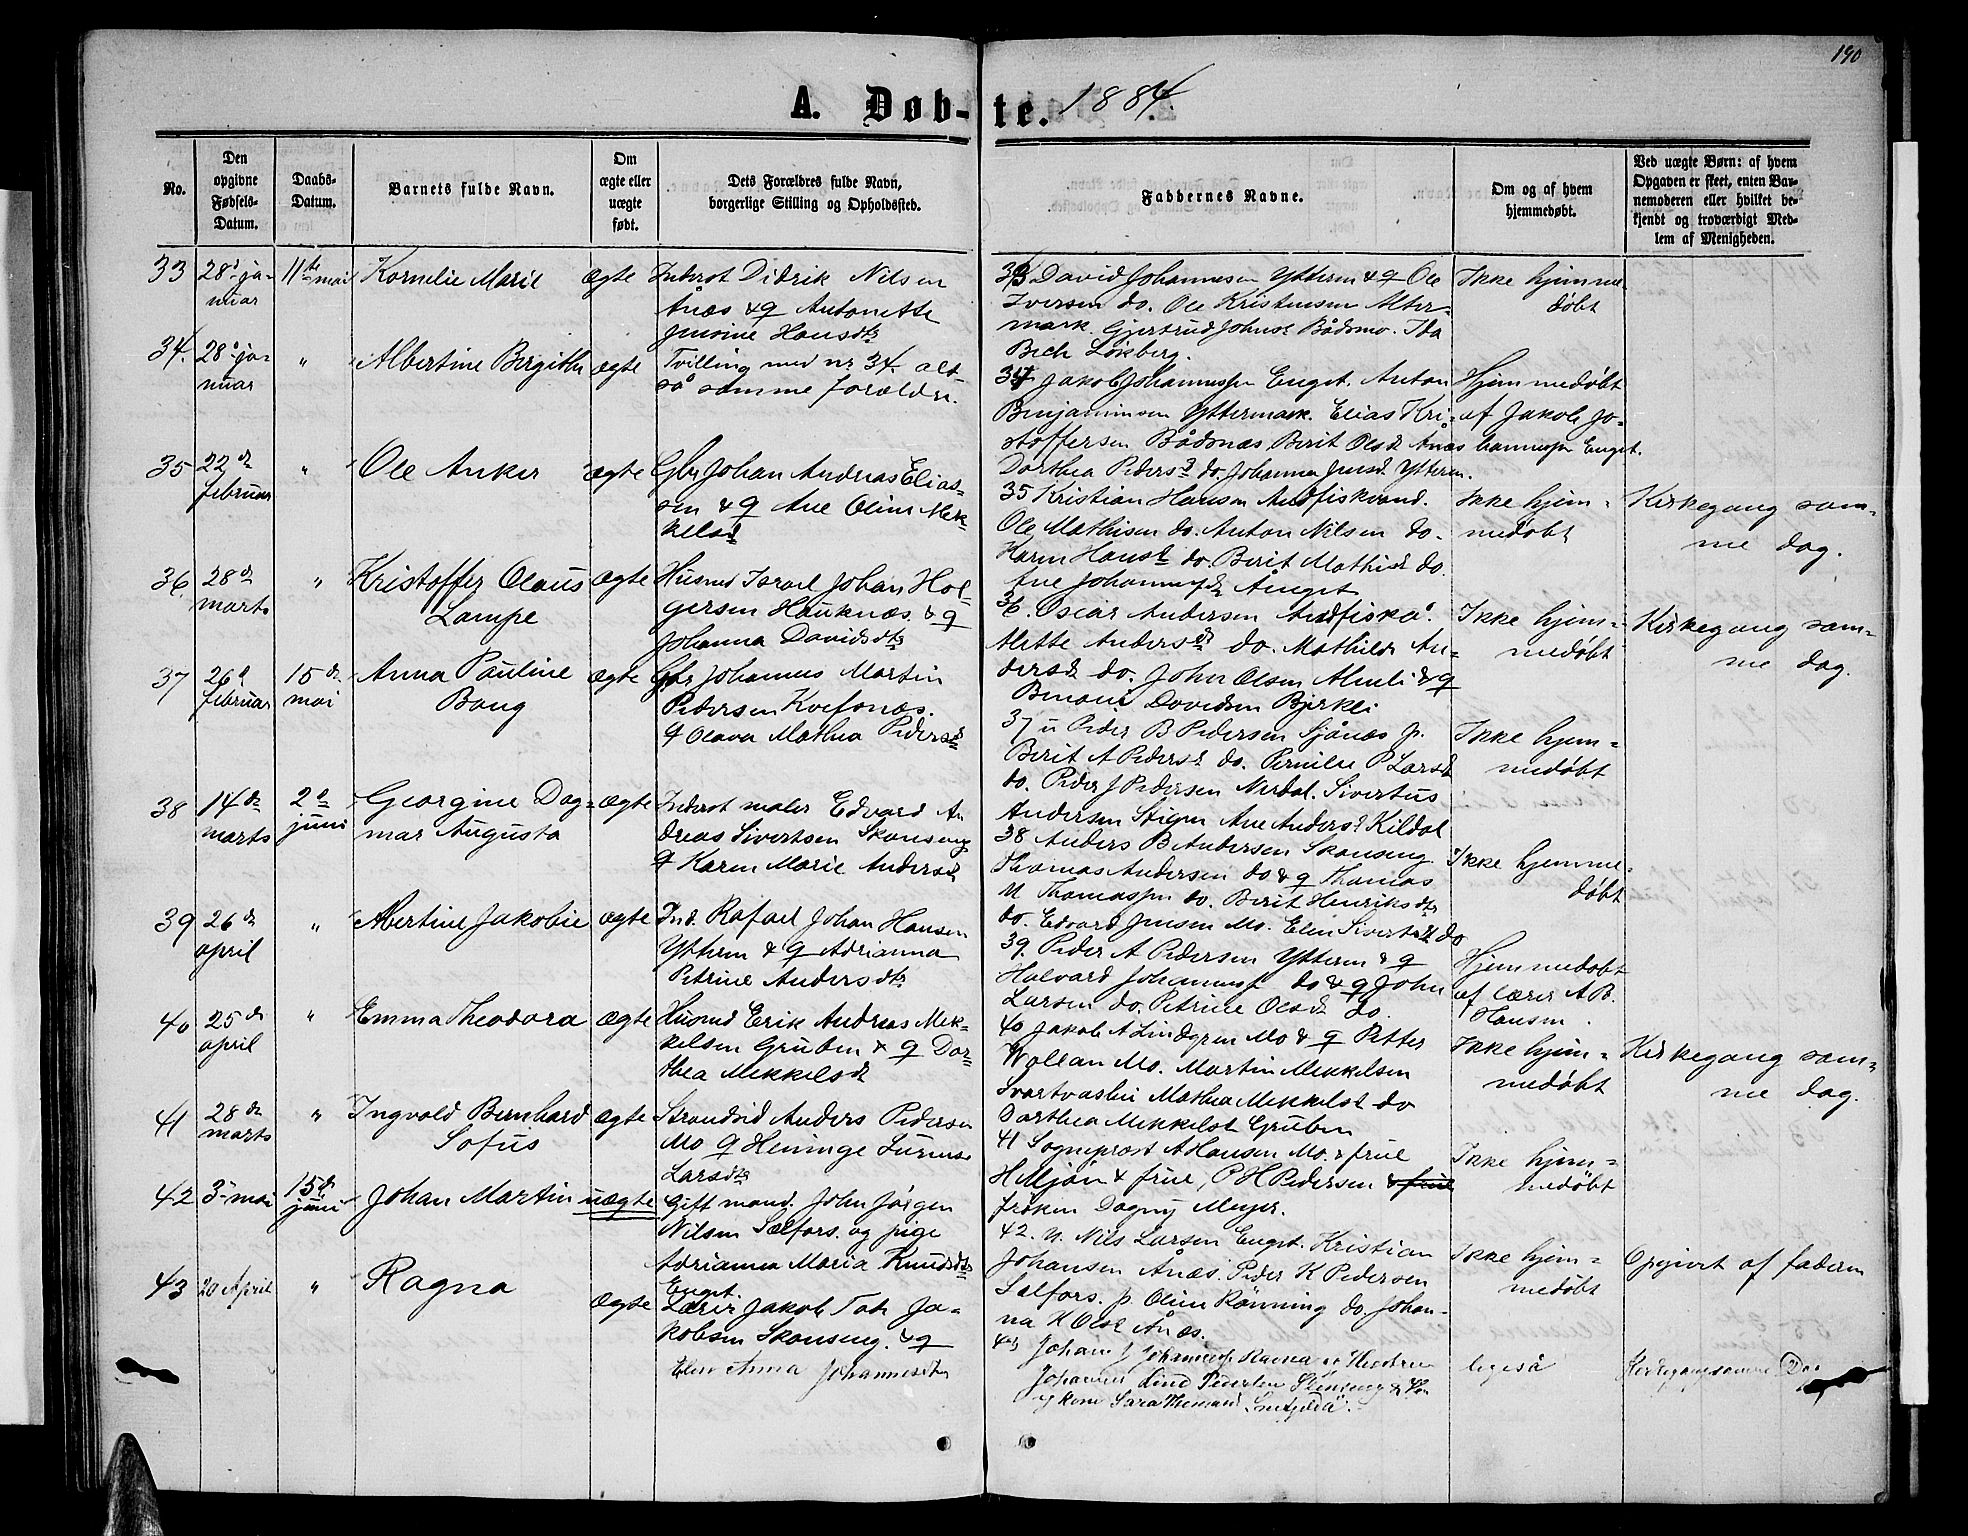 190
A. Døb-te. 1884.
No.
Den opgivne Fødsels-Datum.
Daabs-Datum.
Barnets fulde Navn.
Om ægte eller uægte født.
Dets Forældres fulde Navn, borgerlige Stilling og Opholdssted.
Faddernes Navne.
Om og af hvem hjemmedøbt.
Ved uægte Børn: af hvem Opgaven er skeet, enten Barnemoderen eller hvilket bekjendt og troværdigt Medlem af Menigheden.
33 28d januar 11te mai Kornelie Marie ægte
Inderst Didrik Nilsen
Ånæs & q Antonette
Jensine Hansdtr
33 David Johannesen Ytteren & q Ole
Iversen do. Ole Kristensen Alter-
mark. Gjertrud Johnsd Båsmo. Ida
Bech
Ikke hjemme
døbt
34. 28d januar " Albertine Birgithe ægte
Tvilling med nr 34. alt-
så samme forældre.
34 Jakob Johannessen Enget. Anton
Benjaminsen Yttermark. Elias Kri-
stoffersen Båsnæs Berit Olsd Ånæs
Dorthea Pedersd do. Johanna Jensd Ytteren.
Hjemmedøbt
af Jakob Jo-
hannessen Enget.
35 22d februar " Ole Anker ægte
Gbr Johan Andreas Elias-
sen & q Ane Oline Mek-
kelsd
35 Kristian Hansen Andfiskvand.
Ole Mathisen do. Anton Nilsen do.
Karen Hansd do. Berit Mathisd do.
Ane Johannesd Ånget
Ikke hjem-
medøbt
Kirkegang sam-
me dag.
36. 28d marts " Kristoffer Olaus
Lampe ægte
Husmd Israel Johan Hol-
gersen Hauknæs. & q
Johanna Davidsdtr
36. Oscar Andersen Andfiskå.
Mette Andersd do. Mathilde An-
dersd do. John Olsen & q
Benoni Davidsen Bjerkli
Ikke hjem-
medøbt
Kirkegang sam-
me dag.
37 26d februar 15d mai Anna Pauline
Bang ægte
Gbr Johannes Martin
Pedersen Kvefonæs.
q Olava Mathea Pedersd
37 u Peder B Pedersen Sjånæs p.
Berit A Pedersd do. Pernille P Larsd
do. Peder J Pedersen Nerdal. Sivertus
Andersen Stigen Ane Andersd Kildal
Ikke hjem-
medøbt
38 14d marts 2d juni Georgine Dag-
mar Augusta ægte
Inderst maler Edvard An
dreas Sivertsen Skonseng
q Karen Marie Andersd
38 Anders B Andersen Skonseng.
Thomas Andersen do & q Thomas
M Thomassen do. Berit Henriksdtr
do. Edvard Jensen Mo. Elen Sivertsd do
Ikke hjemme-
døbt
39 26d april " Albertine Jakobie ægte
Ind. Rafael Johan Hansen
Ytteren & q Adrianna
Petrine Andersdtr
39. Peder A Pedersen Ytteren & q
Halvard Johannes do & q John
Larsen do. Petrine Olsd do.
Hjemmedøbt
af lærer A B.
Hansen.
40 25d april " Emma Theodora ægte
Husmd Erik Andreas Mek-
kelsen Gruben & q Dor-
thea Mekkelsd
40 Jakob A Lindgren Mo & q Petter
Wollan Mo. Martin Mekkelsen
Svartvasli Mathea Mekkelsd do
Dorthea Mekkelsd Gruben
Ikke hjem-
medøbt
Kirkegang sam-
me dag.
41 28d marts " Ingvald Bernhard
Sofus ægte
Strandsid Anders Pedersen
Mo q Heninge
Larsdtr
41 Sogneprost A Hansen Mo. & frue
H Mjøn & frue, P H Pedersen & frue
frøken Dagny Meyer.
Ikke hjem-
medøbt
42 3 mai 15d juni Johan Martin uægte
Gift mand. John Jørgen
Nilsen Sælfors. og pige
Adrianna Maria Knudsdtr
Enget.
42. u. Nils Larsen Enget. Kristian
Johansen Ånæs. Peder K Pedersen
Selfors. p. Oline Rønning do. Johan-
na K Olsd Ånæs.
Ikke hjem-
medøbt
Opgivet af faderen
43 20 April " Ragna ægte
Lærer Jakob Tob. Ja-
kobsen Skonseng. & q
Elen Anna Johannesdtr
43 Johan J Johannes Ragna
Johannes Lind Pedersen Skonseng
kone Sara
ligeså
Kirkegang samme Dag